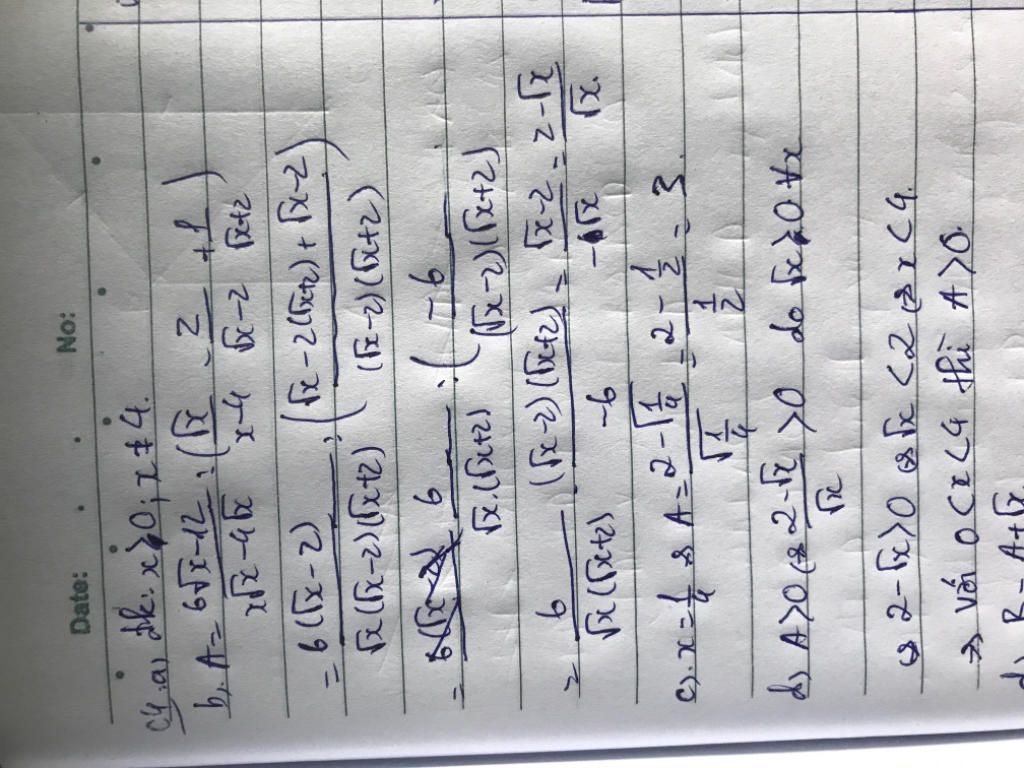 Date: No:
C4. a, đk: x>0; x≠4.
b, A = (6√x-12)/(x√x-4√x) : (√x/(x-4) - 2/(√x-2) + 1/(√x+2))
= 6(√x-2)/(√x(√x-2)(√x+2)) : ((√x-2(√x+2)+√x-2)/((√x-2)(√x+2)))
= 6/(√x.(√x+2)) : (-6/((√x-2)(√x+2)))
= 6/(√x(√x+2)) . ((√x-2)(√x+2))/-6 = (√x-2)/-√x = (2-√x)/√x.
c). x = 1/4 => A = (2-√(1/4))/√(1/4) = (2-1/2)/(1/2) = 3.
d, A>0 <=> (2-√x)/√x > 0 do √x>0 ∀x
=> 2-√x>0 <=> √x<2 <=> x<4.
=> Với 0<x<4 thì A>0.
d, B = A+√x